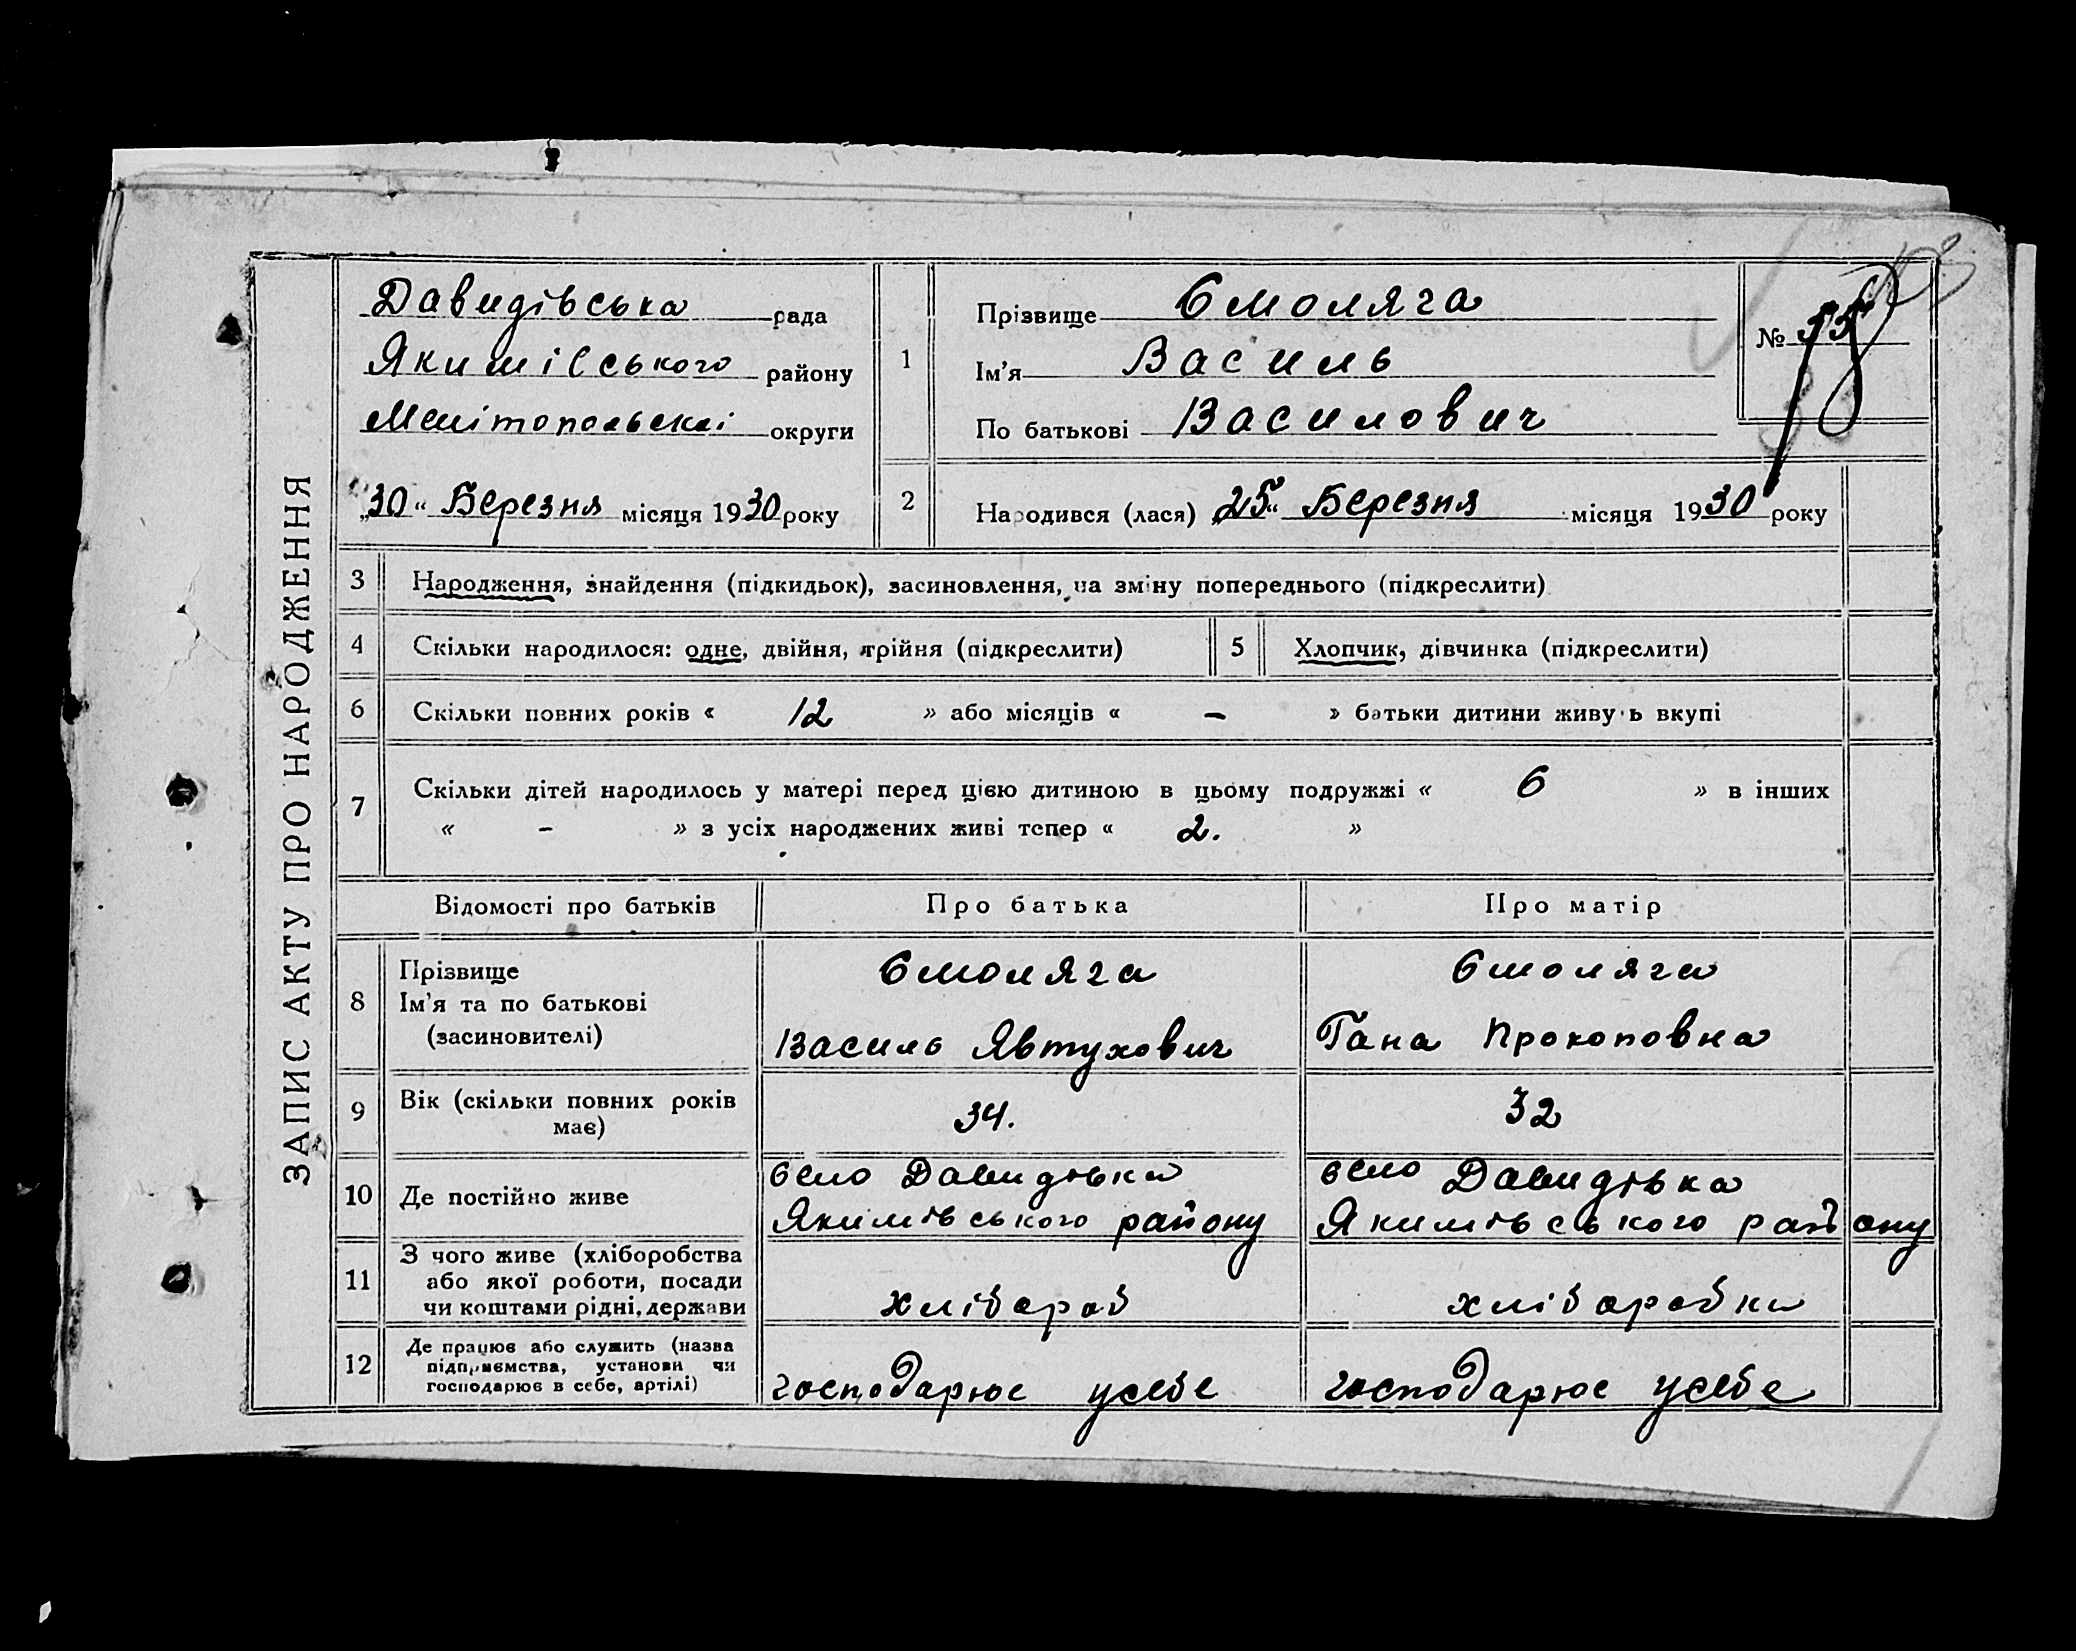 ЗАПИС АКТУ ПРО НАРОДЖЕННЯ
Давидівська рада
Якимівського району
Мелітопольскі округи
„30“ Березня місяця 1930 року
1
Прізвище Смоляга
Ім'я Василь
По батькові Василович
№
2
Народився (лася) „25“ Березня місяця 1930 року
3 Народження, знайдення (підкидьок), засиновлення, на зміну попереднього (підкреслити)
4 Скільки народилося: одне, двійня, трійня (підкреслити) 5 Хлопчик, дівчинка (підкреслити)
6 Скільки повних років « 12 » або місяців « – » батьки дитини живуть вкупі
7 Скільки дітей народилось у матері перед цією дитиною в цьому подружжі « 6 » в інших
« – » з усіх народжених живі тепер « 2. »
Відомості про батьків Про батька Про матір
8 Прізвище
Ім'я та по батькові
(засиновителі)
Смоляга
Василь Явтухович
Смоляга
Гана Прокоповна
9 Вік (скільки повних років
має)
34.
32
10 Де постійно живе
село Давидівка
Якимівського району
село Давидівка
Якимівського району
11 З чого живе (хліборобства
або якої роботи, посади
чи коштами рідні, держави
хлібороб
хліборобка
12 Де працює або служить (назва
підприємства, установи чи
господарює в себе, артілі)
господарює усебе
господарює усебе